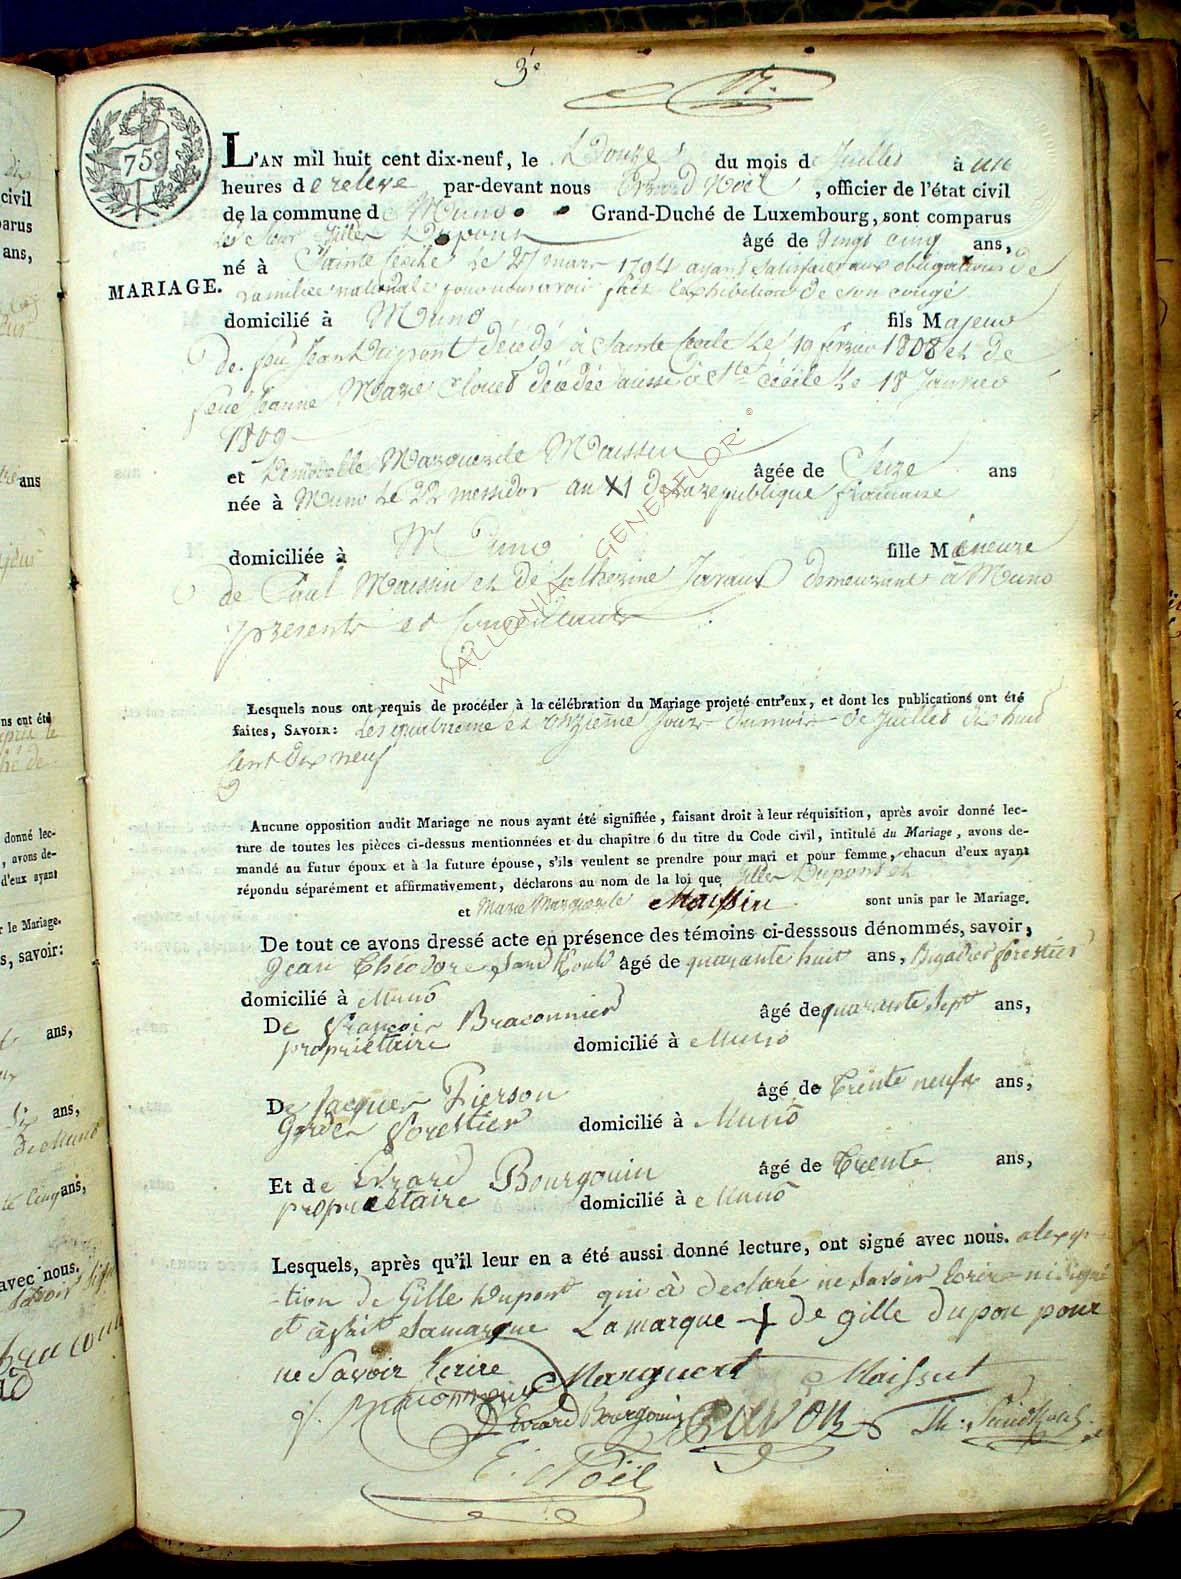 3e
75c
MARIAGE.
L'AN mil huit cent dix-neuf, le Douze du mois de Juillet à une
heures de relevé par-devant nous Evrard Noël, officier de l'état civil
de la commune de Muno Grand-Duché de Luxembourg, sont comparus
le Sieur Gilles Dupont âgé de vingt cinq ans,
né à Sainte Cécile le 27 mars 1794 ayant satisfait aux obligations de
la milice nationale pour nous avoir fait l'exhibition de son congé
domicilié à Muno fils Majeur
de feu Jean Dupont décédé à Sainte Cecile le 19 fevrier 1808 et de
feue Jeanne Marie Clouet décédée aussi à Ste Cécile le 18 Janvier
1809
et Demoiselle Marguerite Maissin âgée de Seize ans
née à Muno le 22 messidor an XI de la république française
domiciliée à Muno fille Mineure
de Paul Maissin et de Catherine Javaux demeurant à Muno
présents et consentants
Lesquels nous ont requis de procéder à la célébration du Mariage projeté entr'eux, et dont les publications ont été
faites, SAVOIR: les quatrieme et onzieme jours du mois de Juillet dix huit
cent Dix neuf
Aucune opposition audit Mariage ne nous ayant été signifiée, faisant droit à leur réquisition, après avoir donné lec-
ture de toutes les pièces ci-dessus mentionnées et du chapitre 6 du titre du Code civil, intitulé du Mariage, avons de-
mandé au futur époux et à la future épouse, s'ils veulent se prendre pour mari et pour femme, chacun d'eux ayant
répondu séparément et affirmativement, déclarons au nom de la loi que Gilles Dupont et
et Marie Marguerite Maissin sont unis par le Mariage.
De tout ce avons dressé acte en présence des témoins ci-desssous dénommés, savoir,
Jean Théodore âgé de quarante huit ans, Brigadier forestier
domicilié à Muno
De françois Braconnier âgé de quarante Sept ans,
propriétaire domicilié à Muno
De Jacques Pierson âgé de Trente neuf ans,
Garde Forestier domicilié à Muno
Et de Evrard Bourgouin âgé de Trente ans,
propriétaire domicilié à Muno
Lesquels, après qu'il leur en a été aussi donné lecture, ont signé avec nous. a l'exep-
-tion de Gille Dupont qui à declaré ne Savoir Ecrire ni signé
et à fait Sa marque La marque + de gille dupon pour
ne Savoir Ecrire
Marguerit Maissin
f. Braconnier Evrard Bourgouin Pierson Th:
E. Noël
WALLONIA GENEAFLOR ©